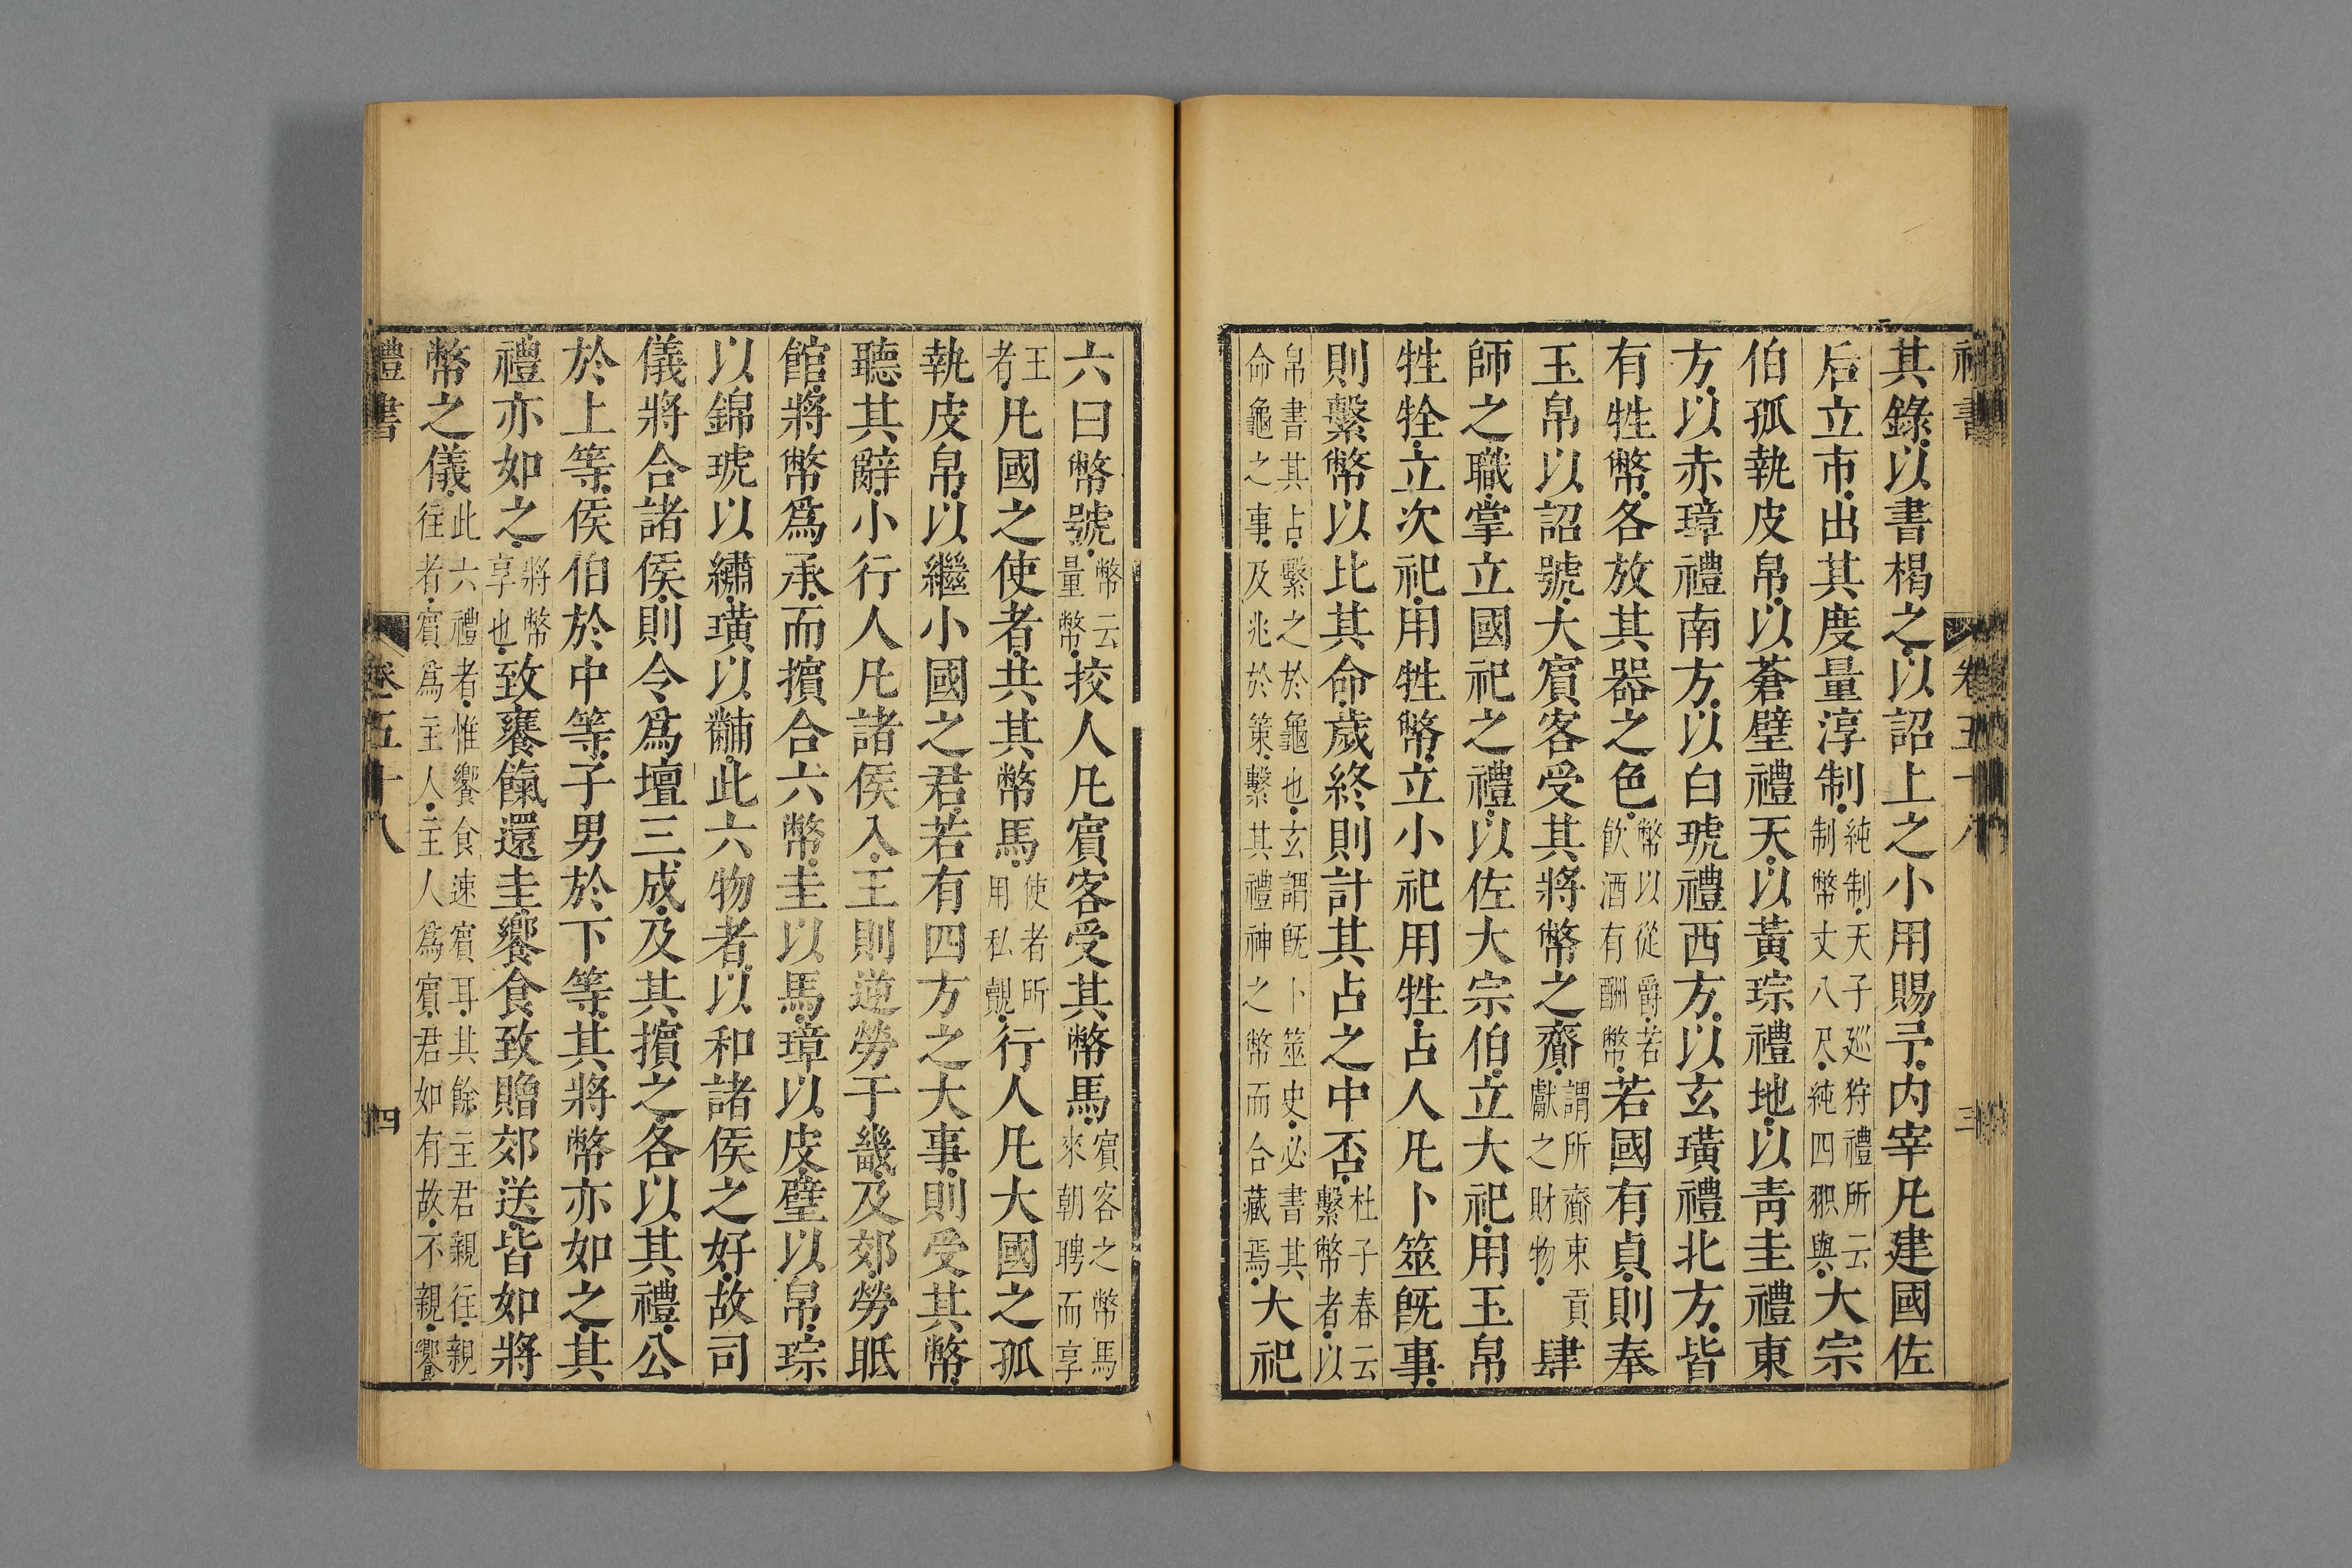 禮書 卷五十八 三
其錄以書楬之以詔上之小用賜予內宰凡建國佐
后立市出其度量淳制純制天子巡狩禮所云制幣丈八尺純四咫與大宗
伯孤執皮帛以蒼璧禮天以黃琮禮地以靑圭禮東
方以赤璋禮南方以白琥禮西方以玄璜禮北方皆
有牲幣各放其器之色幣以從爵若飲酒有酬幣若國有貞則奉
玉帛以詔號大賓客受其將幣之齎謂所齎束貢獻之財物肆
師之職掌立國祀之禮以佐大宗伯立大祀用玉帛
牲牷立次祀用牲幣立小祀用牲占人凡卜筮旣事
則繫幣以比其命歲終則計其占之中否杜子春云繫幣者以
帛書其占繫之於龜也玄謂旣卜筮史必書其命龜之事及兆於策繫其禮神之幣而合藏焉大祀
六曰幣號幣云量幣挍人凡賓客受其幣馬賓客之幣馬來朝聘而享
王者凡國之使者共其幣馬使者所用私覿行人凡大國之孤
執皮帛以繼小國之君若有四方之大事則受其幣
聽其辭小行人凡諸侯入王則逆勞于畿及郊勞眂
館將幣爲承而擯合六幣圭以馬璋以皮璧以帛琮
以錦琥以繡璜以黼此六物者以和諸侯之好故司
儀將合諸侯則令爲壇三成及其擯之各以其禮公
於上等侯伯於中等子男於下等其將幣亦如之其
禮亦如之將幣享也致饔餼還圭饗食致贈郊送皆如將
幣之儀此六禮者惟饗食速賓耳其餘主君親往親往者賓爲主人主人爲賓君如有故不親饗
禮書 卷五十八 四